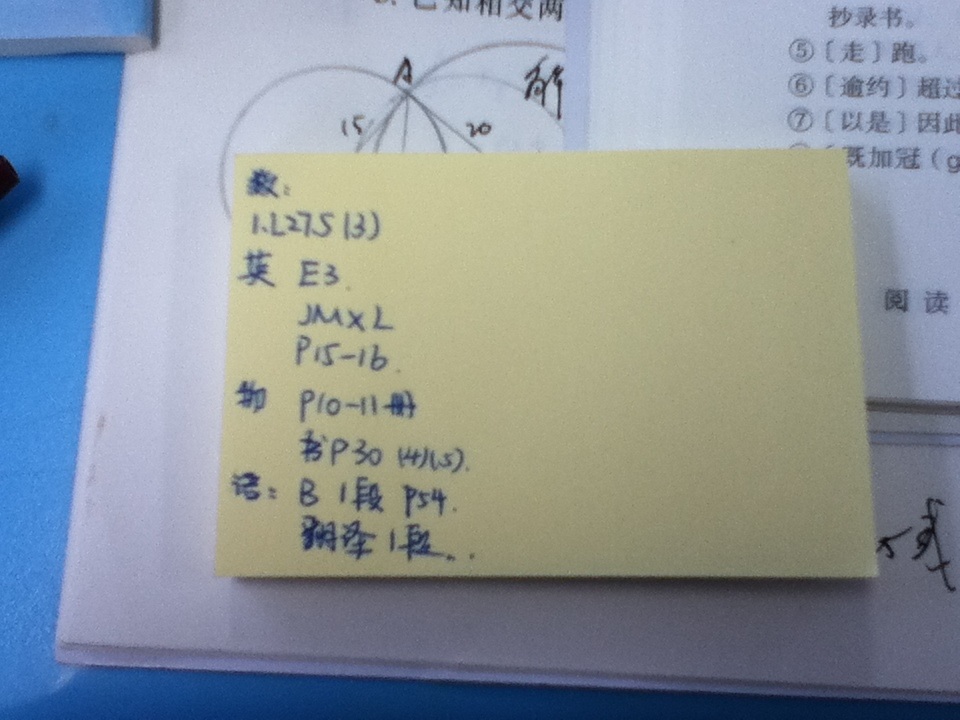 已知相交两
A
15
20
解
抄录书。
⑤〔走〕跑。
⑥〔逾约〕超过
⑦〔以是〕因此
既加冠（g
阅读
数：
1.L27.5(3)
英 E3.
JMXL
P15-16.
物 P10-11册
书P30 (4)(5).
语：B 1段 P54.
翻译1段..